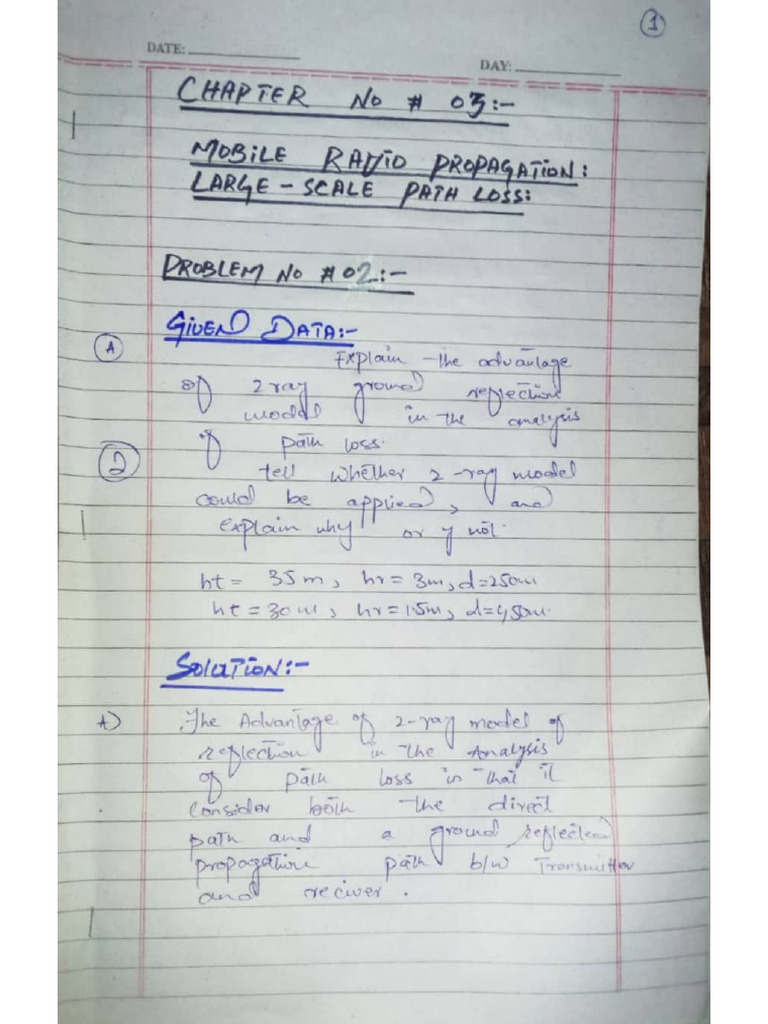 1
DATE:
DAY:
CHAPTER NO # 03:-
MOBILE RADIO PROPAGATION:
LARGE-SCALE PATH LOSS:
PROBLEM NO #02:-
GIVEN DATA:-
A Explain the advantage
of 2 ray ground reflection
model in the analysis
of path loss.
2 tell whether 2-ray model
could be applied, and
explain why or y not.
ht = 35m, hr= 3m, d=250m
ht = 30m, hr=1.5m, d=450m.
SOLUTION:-
A) The Advantage of 2-ray model of
reflection in the Analysis
of path loss is that it
consider both the direct
path and a ground reflected
propagation path b/w Transmitter
and reciver.